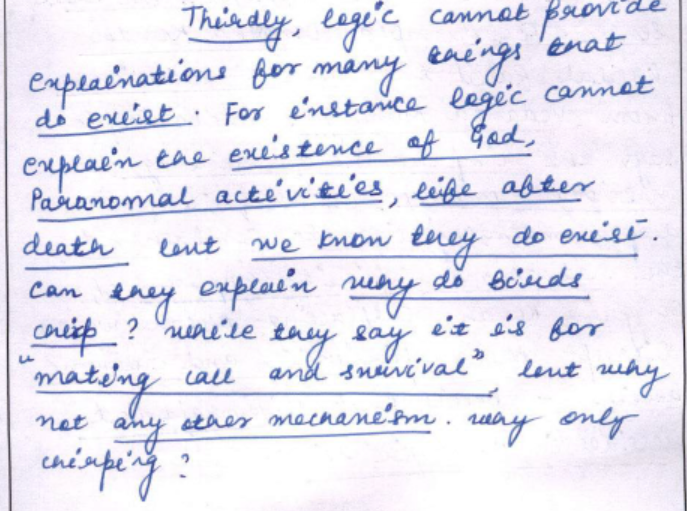 Thirdly, logic cannot provide
explainations for many things that
do exist. For instance logic cannot
explain the existence of God,
Paranomal activities, life after
death but we know they do exist.
Can they explain why do birds
chirp? while they say it is for
"mating call and survival" but why
not any other mechanism. why only
chirping?